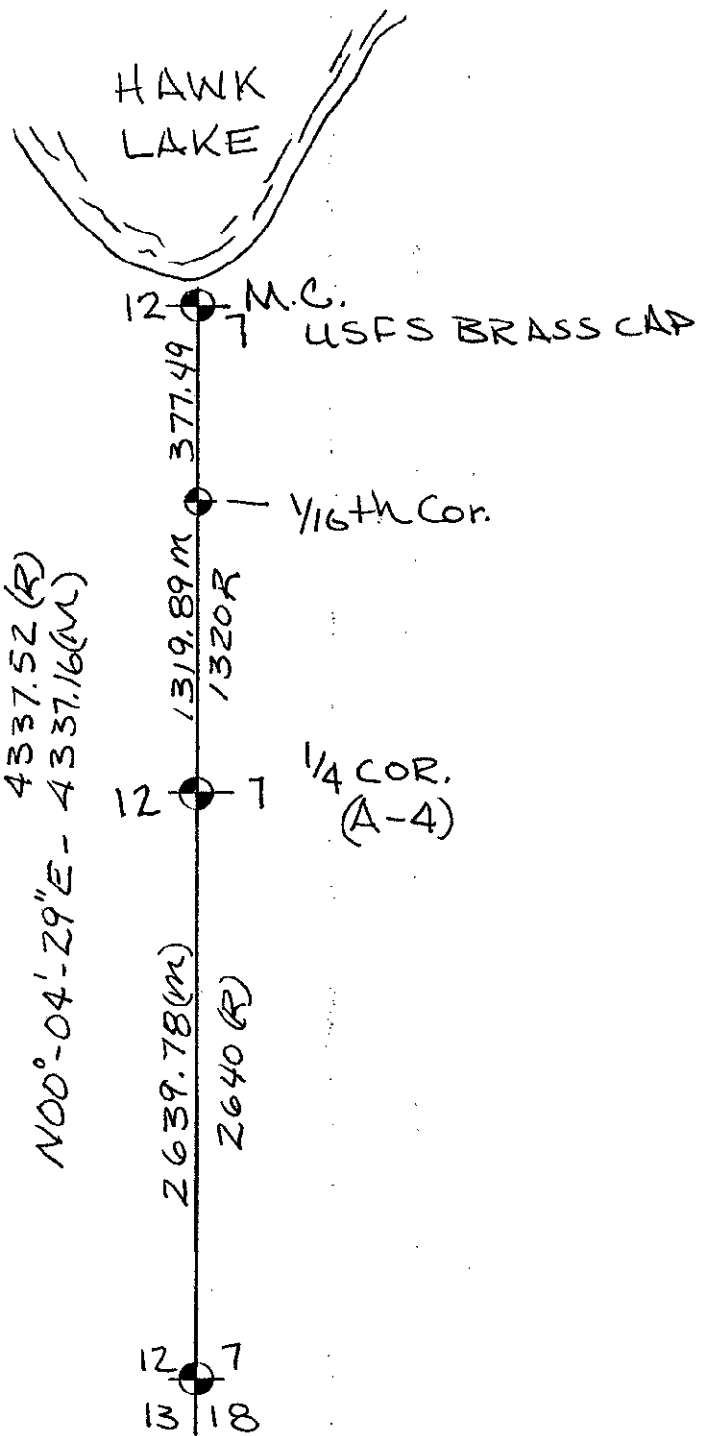 HAWK
LAKE
12 M.C.
7 USFS BRASS CAP
377.49
1/16th Cor.
1319.89 M
1320 R
4337.52 (R)
N00°-04'-29"E - 4337.16(M)
12 7 1/4 COR.
(A-4)
2639.78(M)
2640 (R)
12 7
13 18